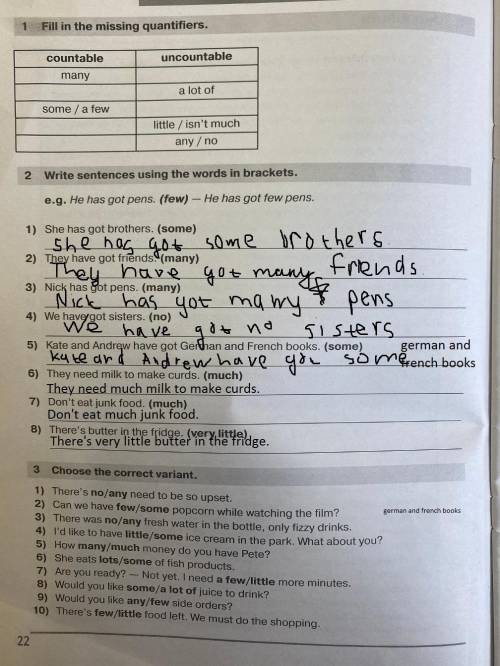 1 Fill in the missing quantifiers.
countable uncountable
many
a lot of
some / a few
little / isn't much
any / no
2 Write sentences using the words in brackets.
e.g. He has got pens. (few) — He has got few pens.
1) She has got brothers. (some)
She has got some brothers.
2) They have got friends. (many)
They have got many friends.
3) Nick has got pens. (many)
Nick has got many pens
4) We have got sisters. (no)
We have got no sisters
5) Kate and Andrew have got German and French books. (some)
Kate and Andrew have got some german and french books
6) They need milk to make curds. (much)
They need much milk to make curds.
7) Don't eat junk food. (much)
Don't eat much junk food.
8) There's butter in the fridge. (very little)
There's very little butter in the fridge.
3 Choose the correct variant.
1) There's no/any need to be so upset.
2) Can we have few/some popcorn while watching the film?
german and french books
3) There was no/any fresh water in the bottle, only fizzy drinks.
4) I'd like to have little/some ice cream in the park. What about you?
5) How many/much money do you have Pete?
6) She eats lots/some of fish products.
7) Are you ready? — Not yet. I need a few/little more minutes.
8) Would you like some/a lot of juice to drink?
9) Would you like any/few side orders?
10) There's few/little food left. We must do the shopping.
22